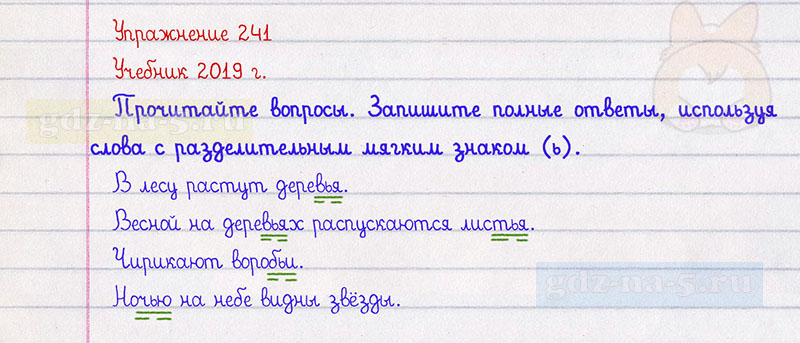 Упражнение 241
Учебник 2019 г.
Прочитайте вопросы. Запишите полные ответы, используя
слова с разделительным мягким знаком (ь).
В лесу растут деревья.
Весной на деревьях распускаются листья.
Чирикают воробьи.
Ночью на небе видны звёзды.
gdz-na-5.ru
gdz-na-5.ru